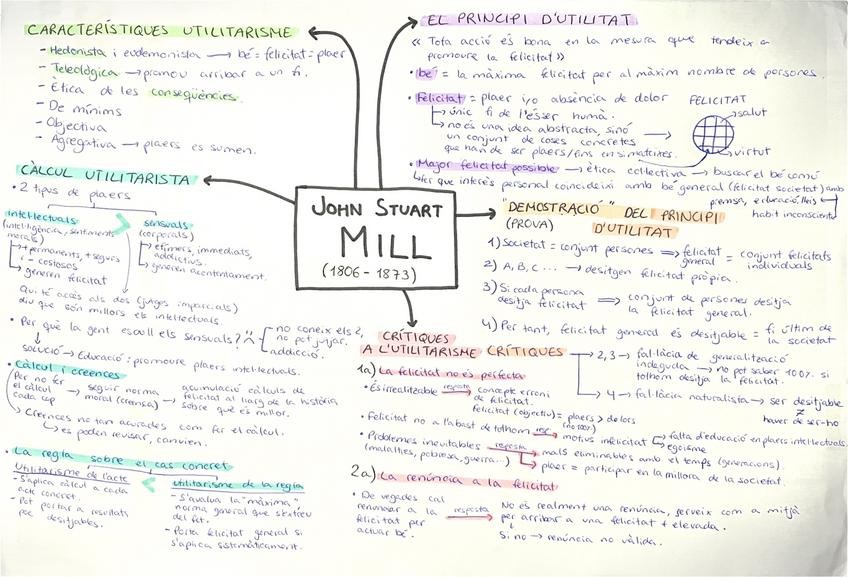 CARACTERÍSTIQUES UTILITARISME
- Hedonista i eudemonista → bé = felicitat = plaer
- Teleològica → promou arribar a un fi.
- Ètica de les conseqüències.
- De mínims
- Objectiva
- Agregativa → plaers es sumen.
CÀLCUL UTILITARISTA
• 2 tipus de plaers
intel·lectuals
(intel·ligència, sentiments, morals)
→ + permanents, + segurs
i - costosos
→ generen felicitat
>
sensuals
(corporals)
→ efímers, immediats,
addictius.
→ generen acontentament.
Qui té accés als dos (jutges imparcials)
diu que són millors els intel·lectuals
• Per què la gent escull els sensuals?
no coneix els 2,
no pot jutjar.
addicció.
SOLUCIÓ → Educació: promoure plaers intel·lectuals.
• Càlcul i creences
Per no fer
el càlcul
cada cop
→ seguir norma
moral (creença)
→ acumulació càlculs de
felicitat al llarg de la història
sobre què és millor.
→ Creences no tan acurades com fer el càlcul.
→ es poden revisar, canvien.
• La regla sobre el cas concret
Utilitarisme de l'acte
- S'aplica càlcul a cada
acte concret.
- Pot portar a resultats
poc desitjables.
<
utilitarisme de la regla
- S'avalua la "màxima"
norma general que s'extreu
del fet.
- Porta felicitat general si
s'aplica sistemàticament.
JOHN STUART
MILL
(1806 - 1873)
EL PRINCIPI D'UTILITAT
« Tota acció és bona en la mesura que tendeix a
promoure la felicitat »
• bé = la màxima felicitat per al màxim nombre de persones.
• Felicitat = plaer i/o absència de dolor
→ únic fi de l'ésser humà.
→ no és una idea abstracta, sinó
un conjunt de coses concretes
que han de ser plaers/fins en si mateixes.
FELICITAT
salut
virtut
• Major felicitat possible → ètica col·lectiva → buscar el bé comú
fer que interès personal coincideixi amb bé general (felicitat societat) amb
premsa, educació, lleis
habit inconscient
"DEMOSTRACIÓ" DEL PRINCIPI
(PROVA) D'UTILITAT
1) societat = conjunt persones ⇒ felicitat general = conjunt felicitats individuals
2) A, B, C ... → desitgen felicitat pròpia.
3) Si cada persona
desitja felicitat ⇒ conjunt de persones desitja
la felicitat general.
4) Per tant, felicitat general és desitjable = fi últim de
la societat
CRÍTIQUES
→ 2, 3 → fal·làcia de generalització
indeguda → no pot saber 100% si
tothom desitja la felicitat.
→ 4 → fal·làcia naturalista → ser desitjable
≠
haver de ser-ho
CRÍTIQUES
A L'UTILITARISME
1a) La felicitat no és perfecta
• És irrealitzable resposta → concepte erroni
de felicitat.
felicitat (objectiu) = plaers > dolors
(no 100%)
• Felicitat no a l'abast de tothom resp. → motius infelicitat
falta d'educació en plaers intel·lectuals.
egoisme
• Problemes inevitables
(malalties, pobresa, guerra...)
resposta → mals eliminables amb el temps (generacions).
→ plaer = participar en la millora de la societat.
2a) La renúncia a la felicitat
• De vegades cal
renunciar a la
felicitat per
actuar bé.
resposta →
No és realment una renúncia, serveix com a mitjà
per arribar a una felicitat + elevada.
Si no → renúncia no vàlida.